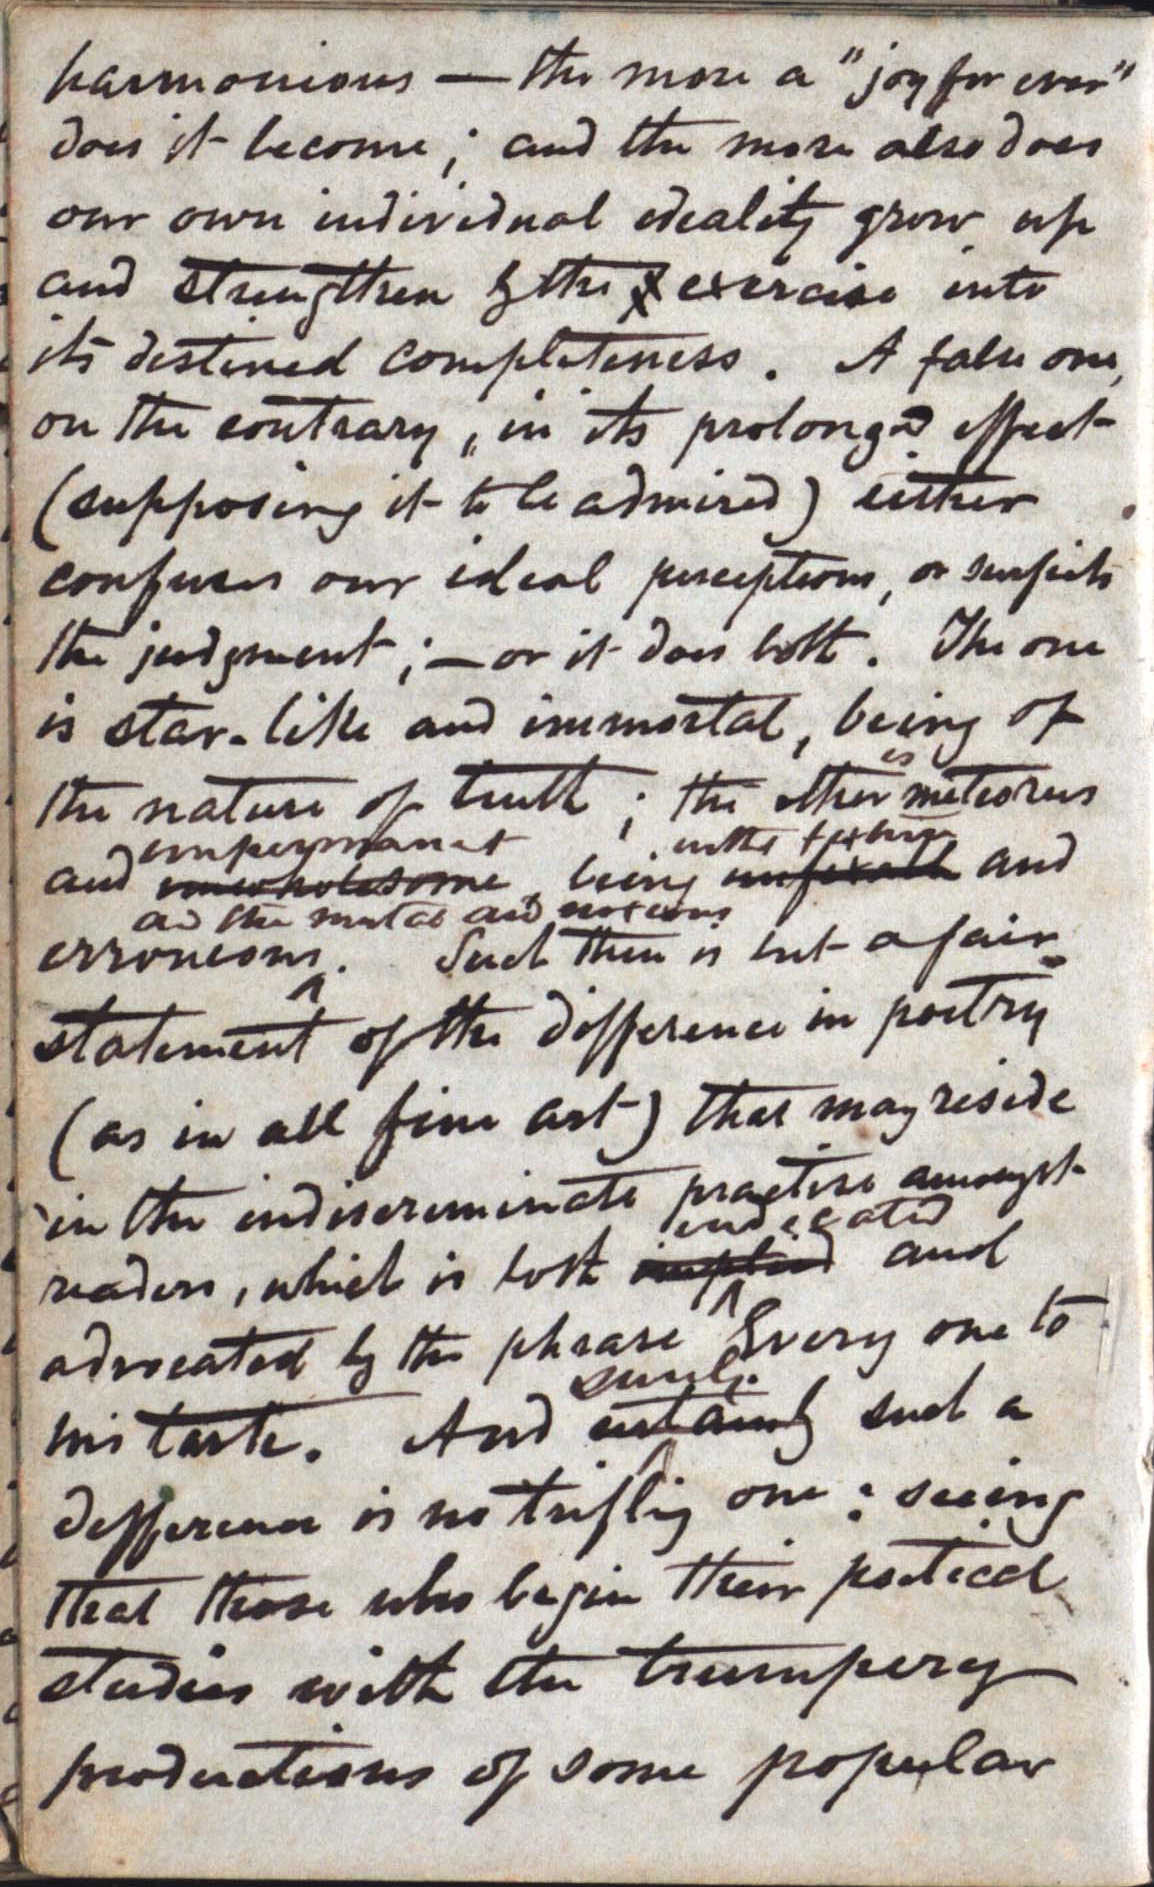 harmonious — the more a "joy for ever"
does it become; and the more also does
our own individual ideality grow up
and strengthen by the exercise into
its destined completeness. A false one,
on the contrary, in its prolonged effect
(supposing it to be admired) either
confuses our ideal perceptions, or surfeits
the judgment; — or it does both. The one
is star-like and immortal, being of
is
the nature of truth; the other meteorus
impermanent in the
and unwholesome, being and
and the mutable and noxious
erroneous. Such then is but a fair
statement of the difference in poetry
(as in all fine art) that may reside
in the indiscriminate practise amongst
indicated
readers, which is both implied and
advocated by the phrase Every one to
surely
his taste. And certainly such a
difference is no triflig one: seeing
that those who begin their poetical
studies with the trumpery
productions of some popular